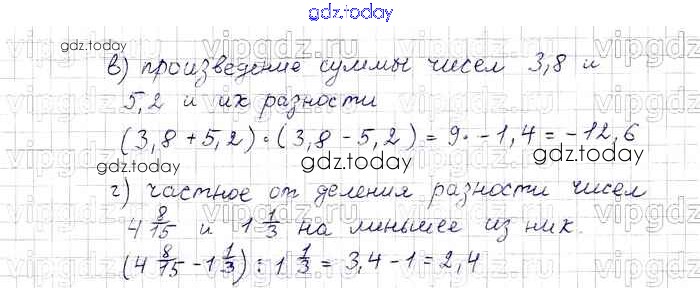 gdz.today
в) произведение суммы чисел 3,8 и
5,2 и их разности
(3,8 + 5,2) · (3,8 - 5,2) = 9 · -1,4 = -12,6
г) частное от деления разности чисел
4 8/15 и 1 1/3 на меньшее из них.
(4 8/15 - 1 1/3) : 1 1/3 = 3,4 - 1 = 2,4
gdz.today
gdz.today
gdz.today
gdz.today
gdz.today
gdz.today
vipgdz.ru
vipgdz.ru